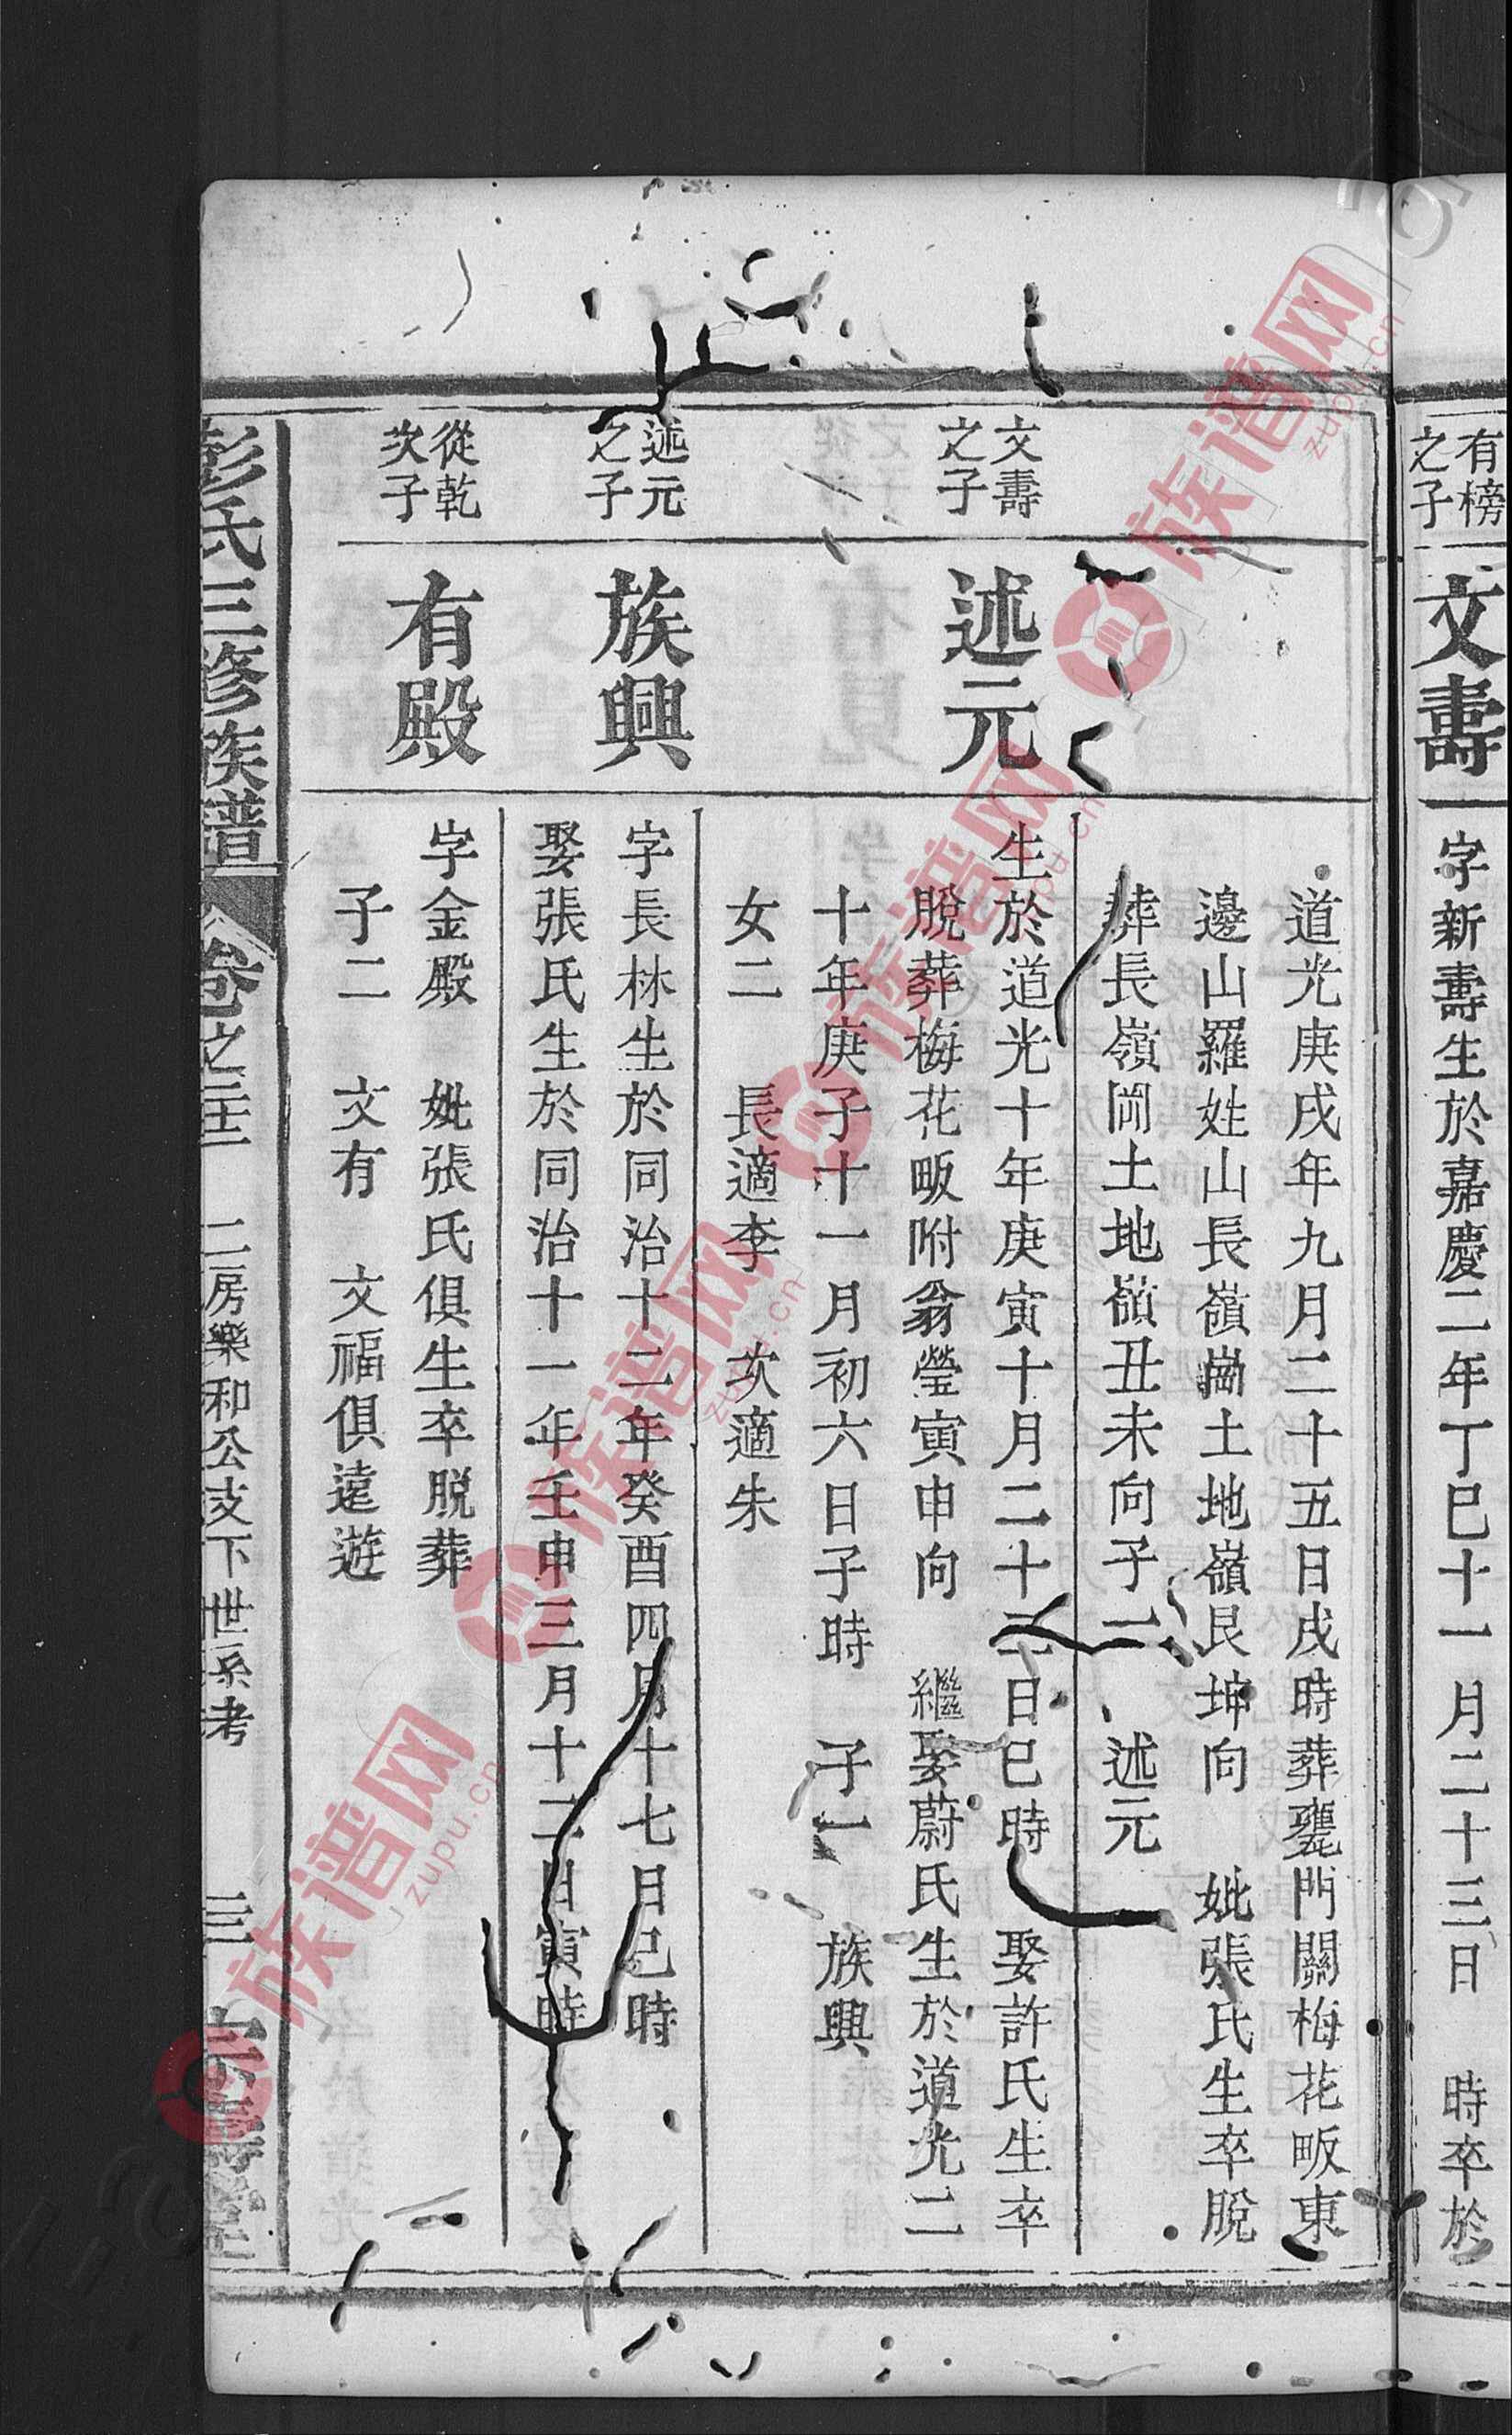 有榜
之子
文壽
字新壽生於嘉慶二年丁巳十一月二十三日 時卒於
道光庚戌年九月二十五日戌時葬甕門關梅花畈東
邊山羅姓山長嶺崗土地嶺艮坤向 妣張氏生卒脫
葬長嶺岡土地嶺丑未向子一 述元
文壽
之子
述元
生於道光十年庚寅十月二十二日巳時 娶許氏生卒
脫葬梅花畈附翁瑩寅申向 繼娶蔚氏生於道光二
十年庚子十一月初六日子時 子一 族興
女二 長適李 次適朱
述元
之子
族興
字長林生於同治十二年癸酉四月十七日巳時
娶張氏生於同治十一年壬申三月十二日寅時
從乾
次子
有殿
字金殿 妣張氏俱生卒脫葬
子二 文有 文福俱遠遊
彭氏三修族譜
卷之二十一 二房樂和公支下世系考
三
族谱网
zupu.cn
族谱网
zupu.cn
族谱网
zupu.cn
族谱网
zupu.cn